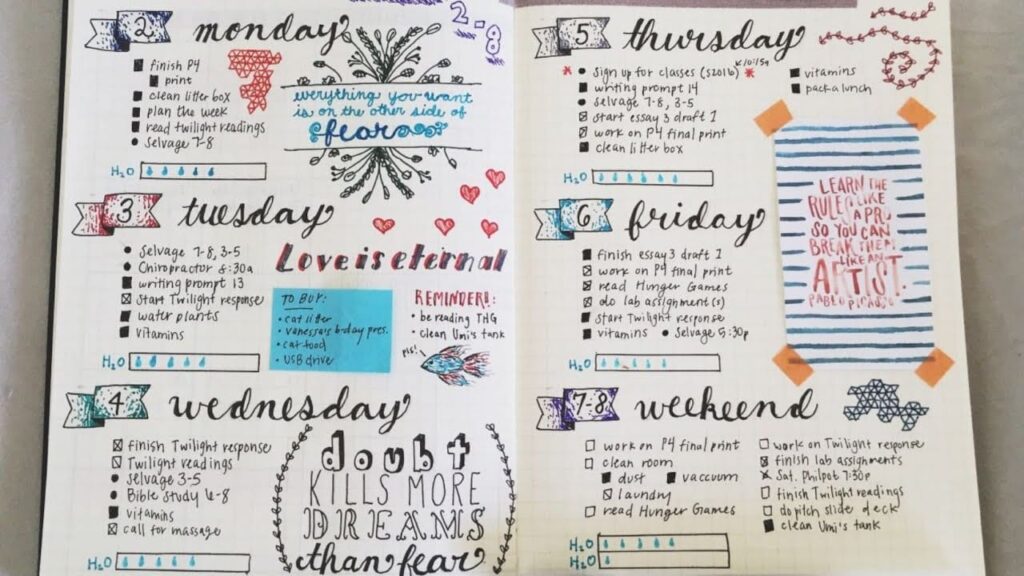 2-8
2 monday
finish P4
print
clean litter box
plan the week
read twilight readings
Selvage 7-8
H₂O
everything you want
is on the other side of
fear
3 tuesday
Selvage 7-8, 3-5
Chiropractor 8:30a
writing prompt 13
Start Twilight response
water plants
vitamins
H₂O
Love is eternal
TO BUY:
cat litter
vanessa's b-day pres.
cat food
USB drive
REMINDER!:
be reading THG
clean Uni's tank
pls!
4 wednesday
finish Twilight response
Twilight readings
Selvage 3-5
Bible Study 6-8
vitamins
call for massage
H₂O
doubt
KILLS MORE
DREAMS
than fear
5 thursday
Sign up for classes (S2016)
writing prompt 14
Selvage 7-8, 3-5
start essay 3 draft 1
work on P4 final print
clean litter box
vitamins
pack a lunch
H₂O
6 friday
finish essay 3 draft 1
work on P4 final print
read Hunger Games
do lab assignment(s)
start Twilight response
vitamins
Selvage 5:30p
H₂O
LEARN THE
RULES LIKE
A PRO
SO YOU CAN
BREAK THEM
LIKE AN
ARTIST.
PABLO PICASSO
7-8 weekend
work on P4 final print
clean room
dust
vaccuum
laundry
read Hunger Games
work on Twilight response
finish lab assignments
Sat. Philpot 7:30p
finish Twilight readings
do pitch slide deck
clean Uni's tank
H₂O
H₂O